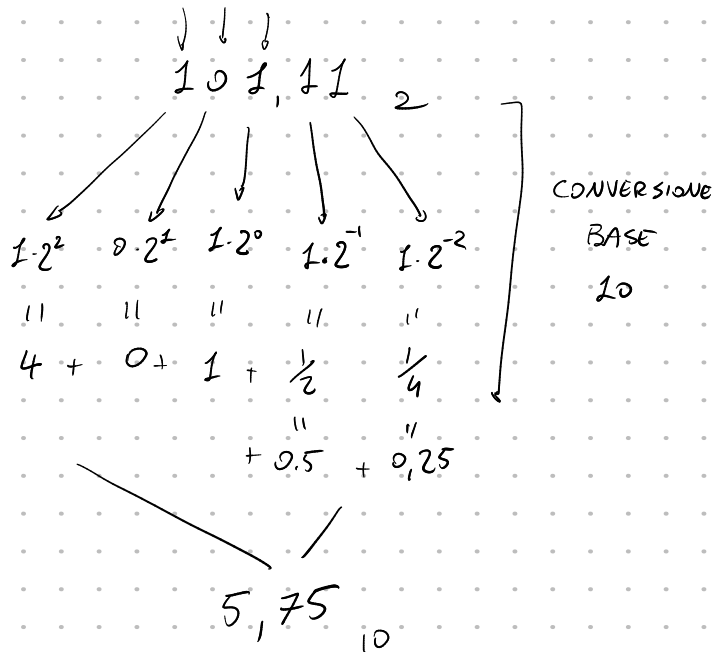 101,11 2
CONVERSIONE
BASE
10
1·2² 0·2¹ 1·2⁰ 1·2⁻¹ 1·2⁻²
= = = = =
4 + 0 + 1 + 1/2 1/4
= =
+ 0.5 + 0,25
5,75 10